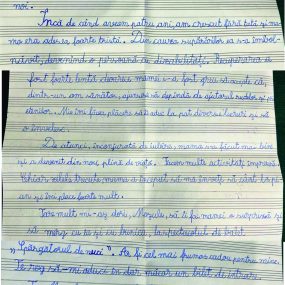 noi.
Încă de când aveam patru ani, am crescut fără tată și ma-
ma era adesea foarte tristă. Din cauza supărărilor ea s-a îmbol-
năvit, devenind o persoană cu dizabilități. Recuperarea a
fost foarte lentă deoarece mamei i-a fost greu să accepte că,
dintr-un om sănătos, ajunsese să depindă de ajutorul rudelor și pri-
etenilor. Mie îmi făcea plăcere să-i aduc la pat diverse lucruri și să
o învelesc.
De atunci, înconjurată de iubire, mama s-a făcut mai bine
și a devenit din nou plină de viață. Facem multe activități împreună.
Chiar zilele trecute mama a început să mă învețe să cânt la pi-
an și îmi place foarte mult.
Tare mult mi-aș dori, Moșule, să îi fac mamei o surpriză și
să merg cu ea și cu bunica, la spectacolul de balet
„Spărgătorul de nuci". Ar fi cel mai frumos cadou pentru mine.
Te rog să-mi aduci în dar măcar un bilet de intrare.